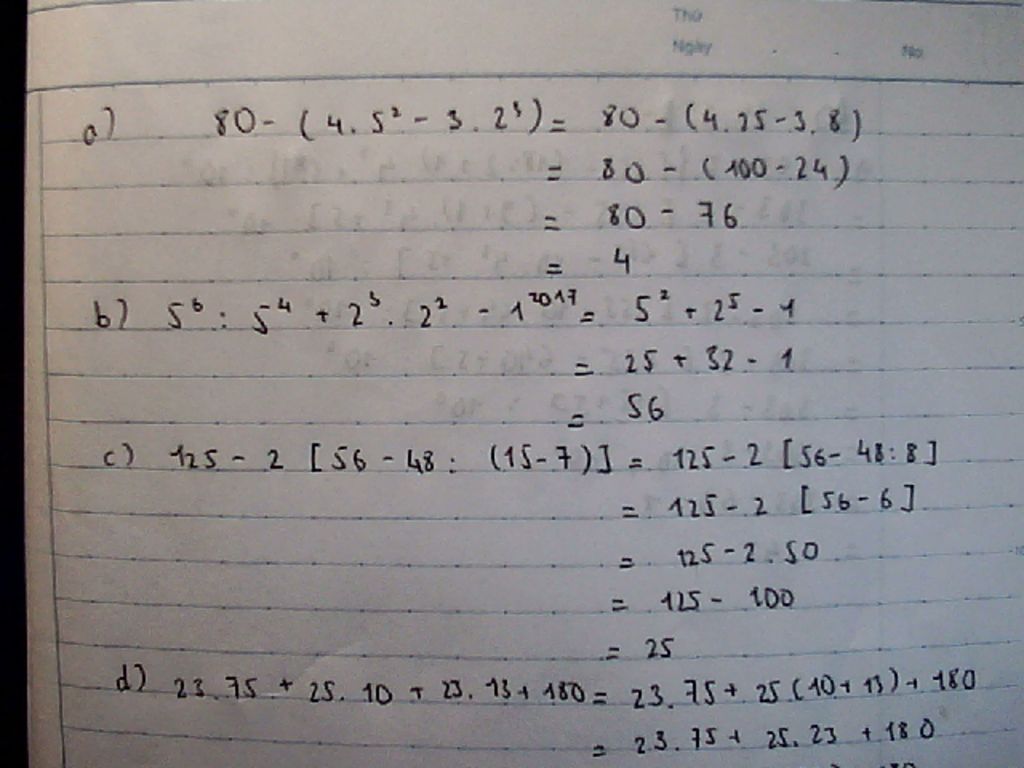 Thứ
Ngày . . No.
a) 80 - (4.5² - 3.2³) = 80 - (4.25 - 3.8)
= 80 - (100 - 24)
= 80 - 76
= 4
b) 5⁶ : 5⁴ + 2³ . 2² - 1²⁰¹⁷ = 5² + 2⁵ - 1
= 25 + 32 - 1
= 56
c) 125 - 2 [56 - 48 : (15 - 7)] = 125 - 2 [56 - 48 : 8]
= 125 - 2 [56 - 6]
= 125 - 2 . 50
= 125 - 100
= 25
d) 23.75 + 25.10 + 23.13 + 180 = 23.75 + 25(10 + 13) + 180
= 23.75 + 25.23 + 180